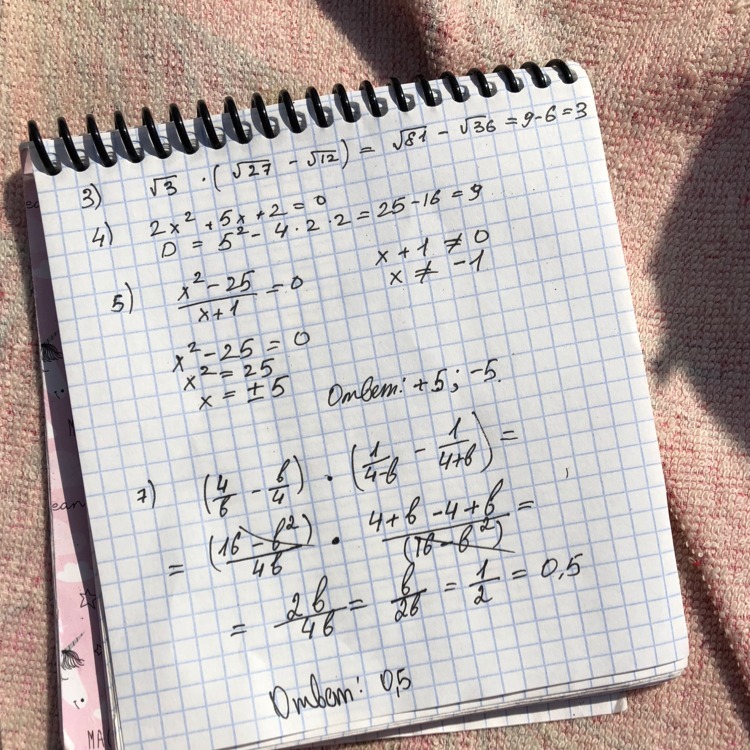 3) √3 · (√27 - √12) = √81 - √36 = 9-6=3
4) 2x² + 5x + 2 = 0
D = 5² - 4·2·2 = 25-16 = 9
5) x²-25/x+1 = 0
x + 1 ≠ 0
x ≠ -1
x² - 25 = 0
x² = 25
x = ± 5
Ответ: +5; -5.
7) (4/в - в/4) · (1/4-в - 1/4+в) =
= (16 - в²)/4в · 4+в -4+в/(16-в²) =
= 2в/4в = в/2в = 1/2 = 0,5
Ответ: 0,5
ean
ean
MA